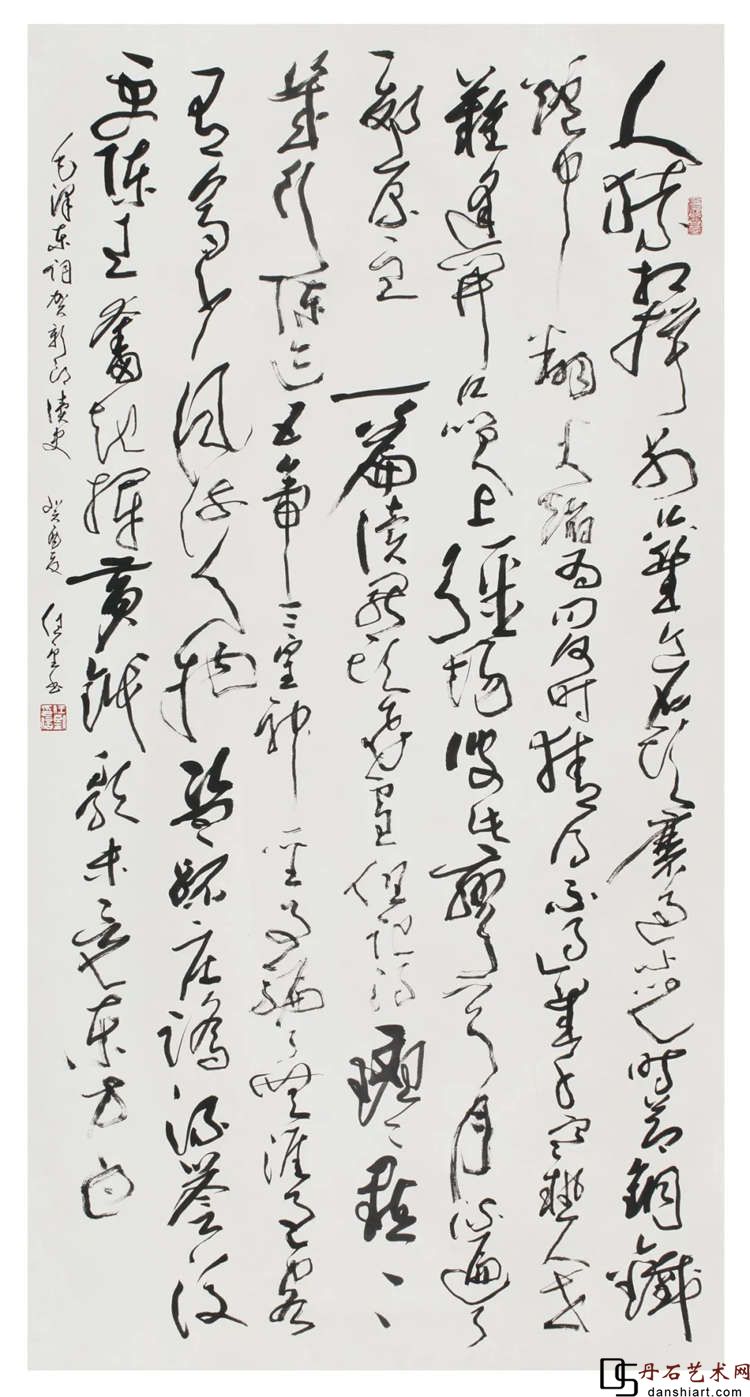 人猿相揖别只幾个石头磨过小儿时节銅鐵
爐中翻火焰为问何时猜得不过幾千寒热人世
難逢開口笑上疆場彼此彎弓月流遍了
郊原血一篇读罢头飞雪但记得斑斑點點
幾行陈迹五帝三皇神聖事騙了無涯过客
有多少风流人物盗跖庄蹻流誉後
更陈王奮起揮黄鉞歌未竟东方白
毛泽东词贺新郎读史 癸 夏 任 书
丹石艺术网
danshiart.com